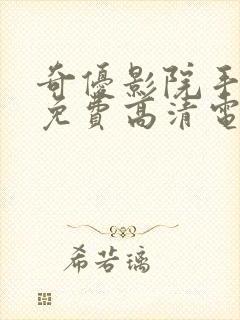 奇優影院手
免費高清電
希若璃